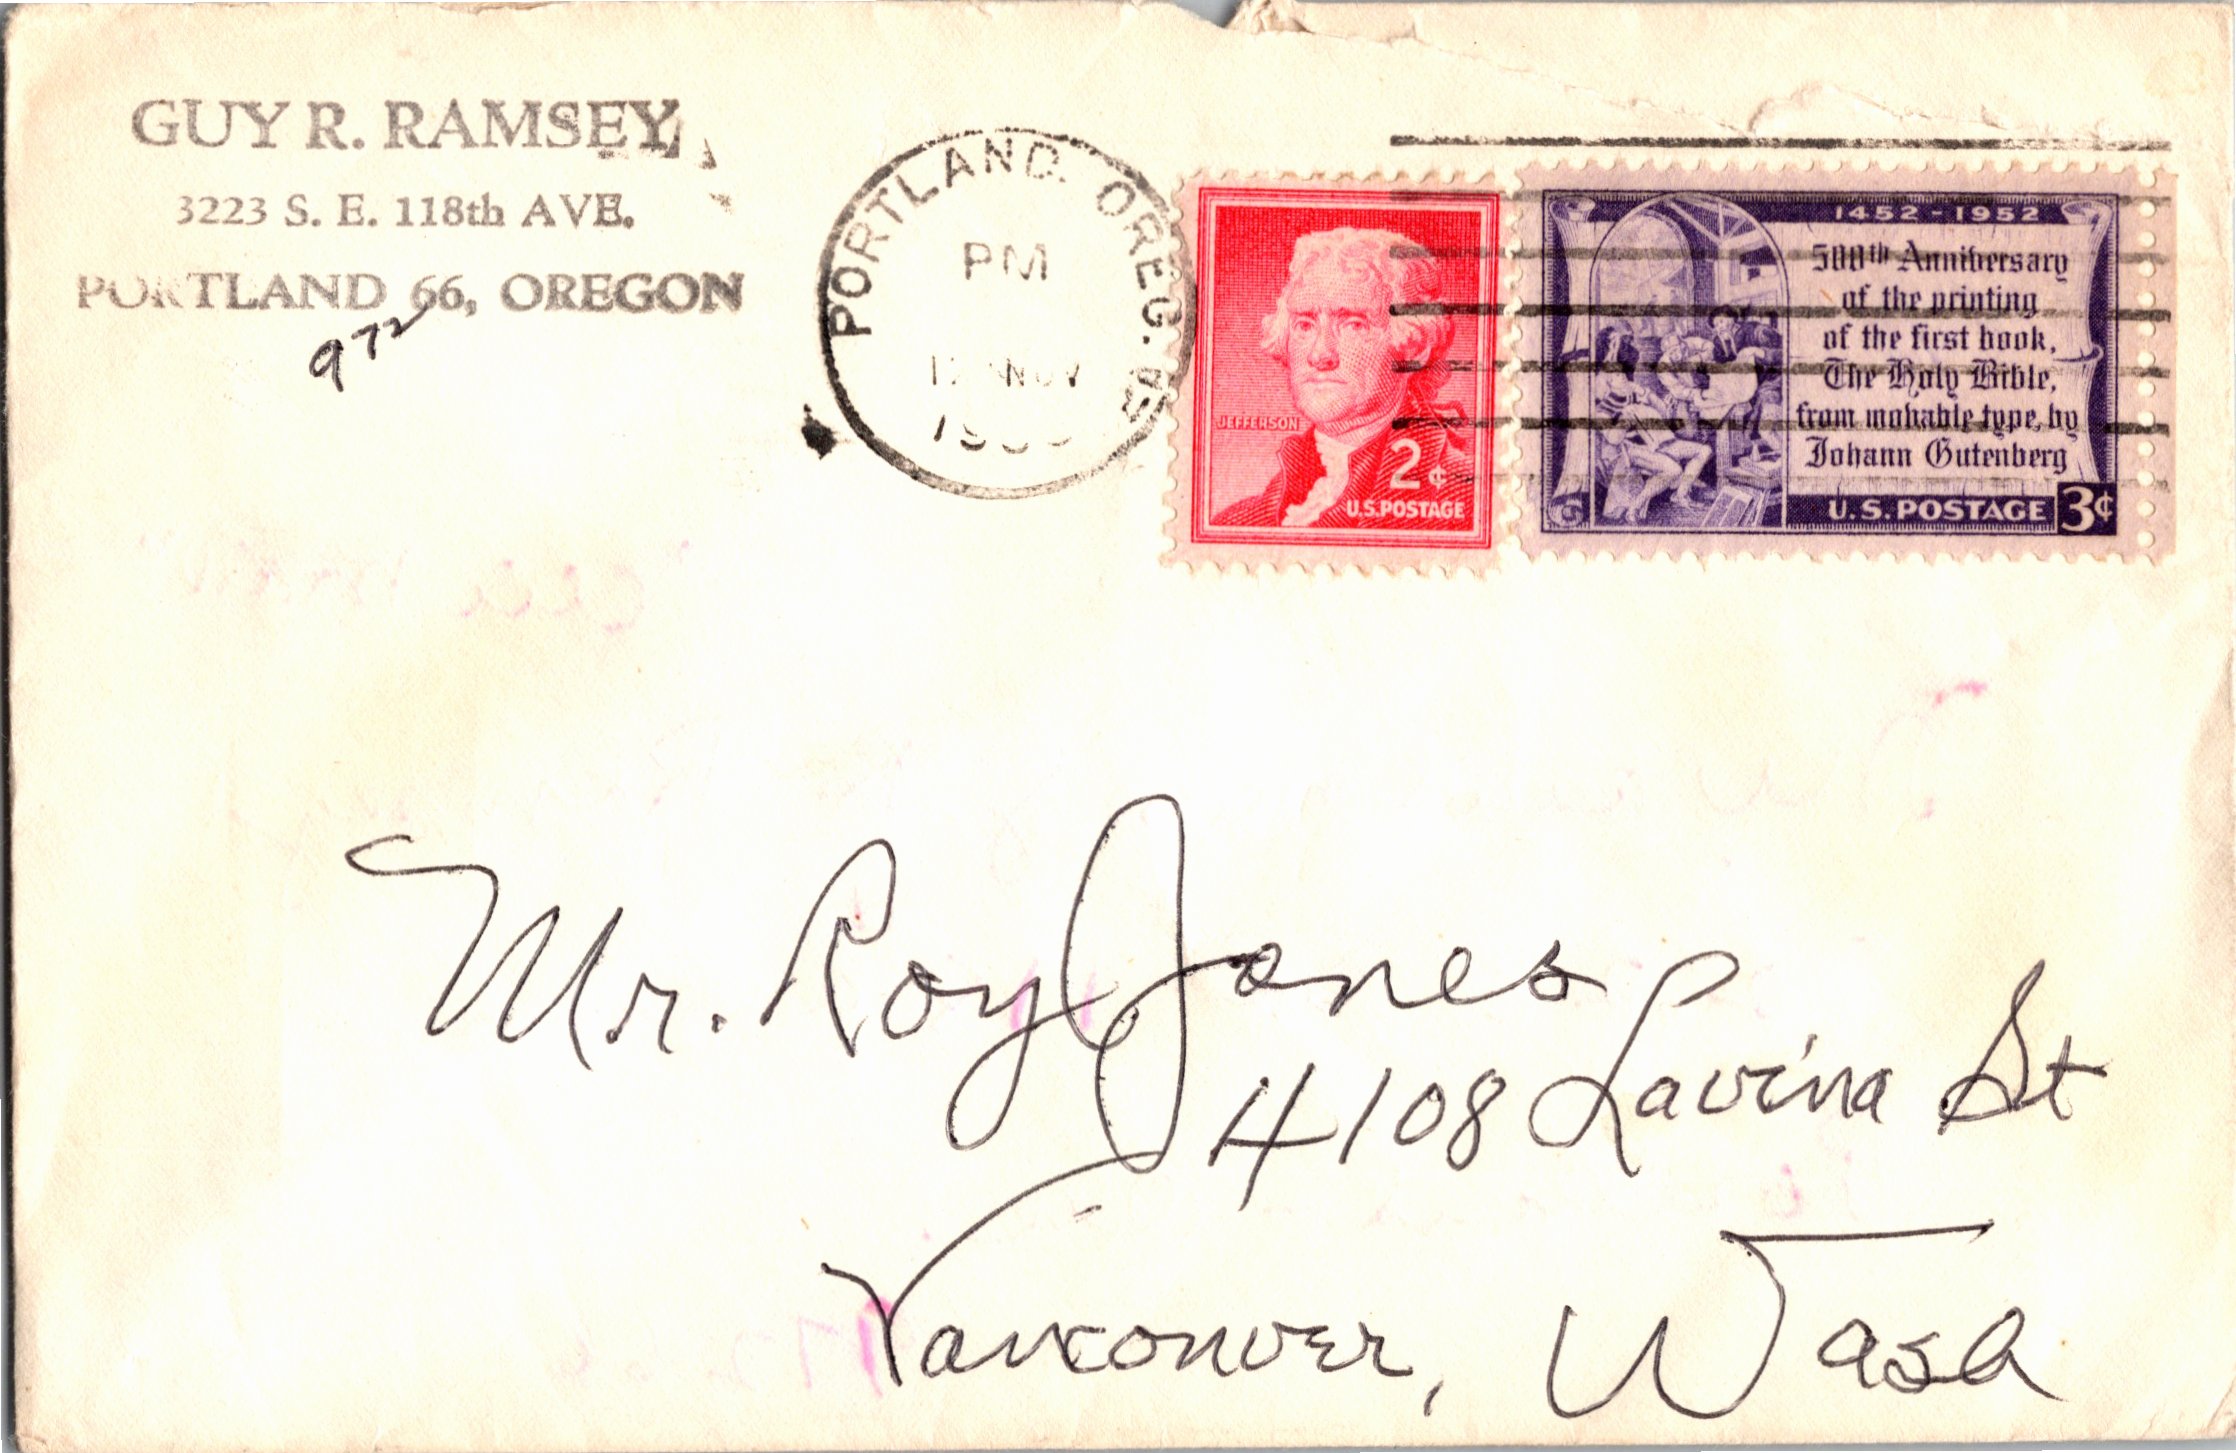 GUY R. RAMSEY
3223 S. E. 118th AVE.
PORTLAND 66, OREGON
972
PORTLAND, OREG.
PM
NOV
JEFFERSON
2¢
U.S.POSTAGE
1452-1952
500th Anniversary
of the printing
of the first book,
The Holy Bible,
from movable type, by
Johann Gutenberg
U.S. POSTAGE 3¢
Mr. Roy Jones
4108 Lavina St
Vancouver, Wash